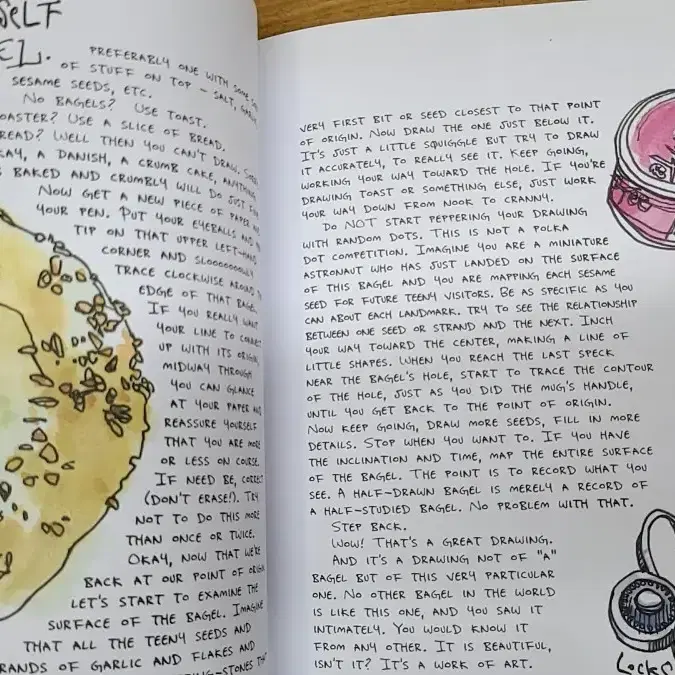 SELF
EL. PREFERABLY ONE WITH SOME
OF STUFF ON TOP – SALT, GARLIC
SESAME SEEDS, ETC.
NO BAGELS? USE TOAST.
OASTER? USE A SLICE OF BREAD.
READ? WELL THEN YOU CAN'T DRAW.
KAY, A DANISH, A CRUMB CAKE, ANYTHING
BAKED AND CRUMBLY WILL DO JUST FINE
NOW GET A NEW PIECE OF PAPER AND
YOUR PEN. PUT YOUR EYEBALLS AND
TIP ON THAT UPPER LEFT-HAND
CORNER AND SLOOOOOOOWLY
TRACE CLOCKWISE AROUND THE
EDGE OF THAT BAGEL.
IF YOU REALLY WANT
YOUR LINE TO CONNECT
UP WITH ITS ORIGIN,
MIDWAY THROUGH
YOU CAN GLANCE
AT YOUR PAPER AND
REASSURE YOURSELF
THAT YOU ARE MORE
OR LESS ON COURSE.
IF NEED BE, CORRECT
(DON'T ERASE!). TRY
NOT TO DO THIS MORE
THAN ONCE OR TWICE.
OKAY, NOW THAT WE'RE
BACK AT OUR POINT OF ORIGIN
LET'S START TO EXAMINE THE
SURFACE OF THE BAGEL. IMAGINE
THAT ALL THE TEENY SEEDS AND
RANDS OF GARLIC AND FLAKES AND
ING-STONES THAT
VERY FIRST BIT OR SEED CLOSEST TO THAT POINT
OF ORIGIN. NOW DRAW THE ONE JUST BELOW IT.
IT'S JUST A LITTLE SQUIGGLE BUT TRY TO DRAW
IT ACCURATELY, TO REALLY SEE IT. KEEP GOING,
WORKING YOUR WAY TOWARD THE HOLE. IF YOU'RE
DRAWING TOAST OR SOMETHING ELSE, JUST WORK
YOUR WAY DOWN FROM NOOK TO CRANNY.
DO NOT START PEPPERING YOUR DRAWING
WITH RANDOM DOTS. THIS IS NOT A POLKA
DOT COMPETITION. IMAGINE YOU ARE A MINIATURE
ASTRONAUT WHO HAS JUST LANDED ON THE SURFACE
OF THIS BAGEL AND YOU ARE MAPPING EACH SESAME
SEED FOR FUTURE TEENY VISITORS. BE AS SPECIFIC AS YOU
CAN ABOUT EACH LANDMARK. TRY TO SEE THE RELATIONSHIP
BETWEEN ONE SEED OR STRAND AND THE NEXT. INCH
YOUR WAY TOWARD THE CENTER, MAKING A LINE OF
LITTLE SHAPES. WHEN YOU REACH THE LAST SPECK
NEAR THE BAGEL'S HOLE, START TO TRACE THE CONTOUR
OF THE HOLE, JUST AS YOU DID THE MUG'S HANDLE,
UNTIL YOU GET BACK TO THE POINT OF ORIGIN.
NOW KEEP GOING, DRAW MORE SEEDS, FILL IN MORE
DETAILS. STOP WHEN YOU WANT TO. IF YOU HAVE
THE INCLINATION AND TIME, MAP THE ENTIRE SURFACE
OF THE BAGEL. THE POINT IS TO RECORD WHAT YOU
SEE. A HALF-DRAWN BAGEL IS MERELY A RECORD OF
A HALF-STUDIED BAGEL. NO PROBLEM WITH THAT.
STEP BACK.
WOW! THAT'S A GREAT DRAWING.
AND IT'S A DRAWING NOT OF "A"
BAGEL BUT OF THIS VERY PARTICULAR
ONE. NO OTHER BAGEL IN THE WORLD
IS LIKE THIS ONE, AND YOU SAW IT
INTIMATELY. YOU WOULD KNOW IT
FROM ANY OTHER. IT IS BEAUTIFUL,
ISN'T IT? IT'S A WORK OF ART.